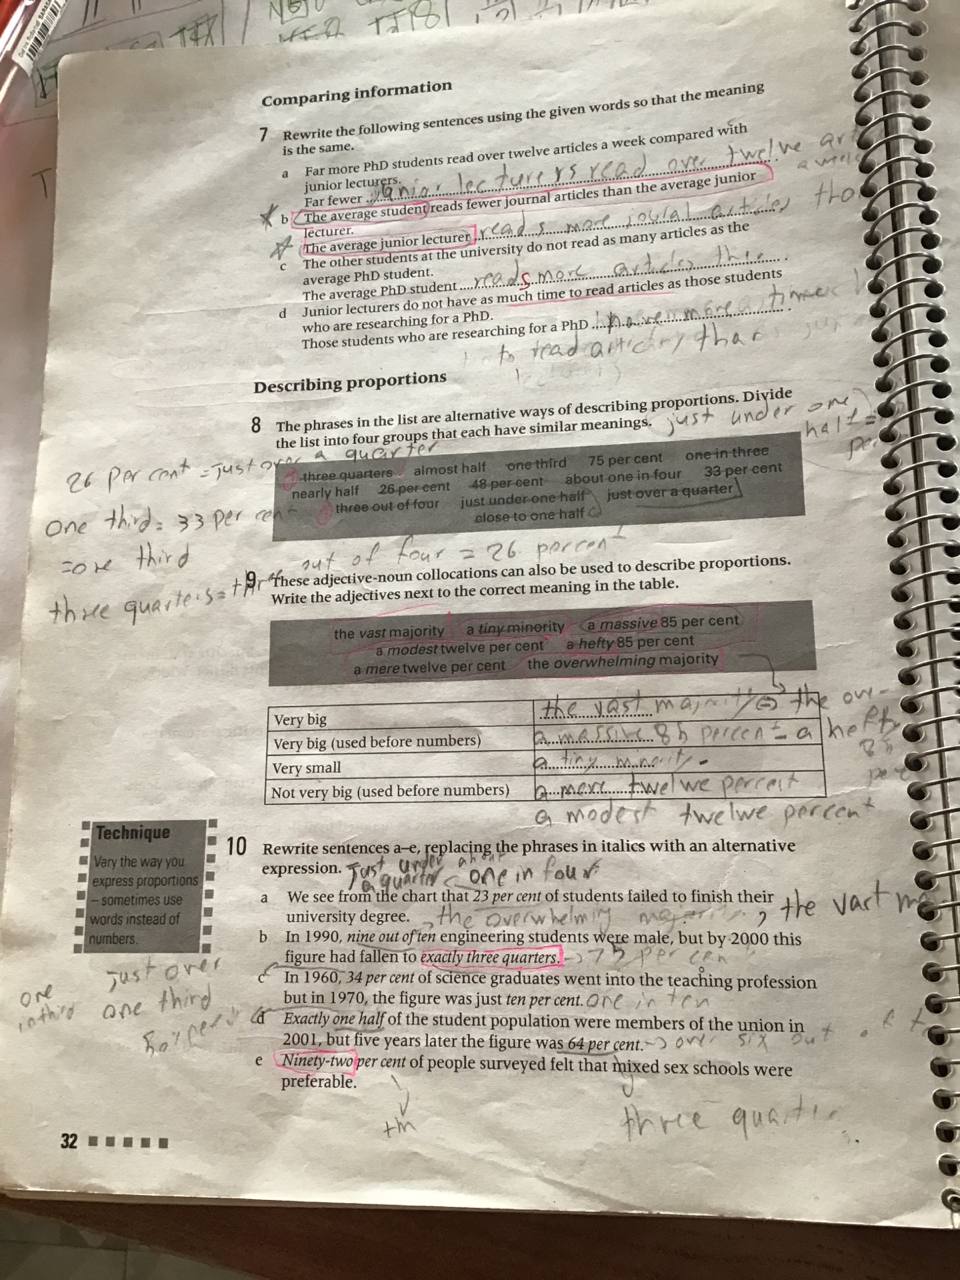 Comparing information
7 Rewrite the following sentences using the given words so that the meaning
is the same.
a Far more PhD students read over twelve articles a week compared with
junior lecturers.
Far fewer junior lecturers read over twelve
b The average student reads fewer journal articles than the average junior
lecturer.
The average junior lecturer reads more joural articles tha
c The other students at the university do not read as many articles as the
average PhD student.
The average PhD student reads more articles
d Junior lecturers do not have as much time to read articles as those students
who are researching for a PhD.
Those students who are researching for a PhD have more time
to read
Describing proportions
8 The phrases in the list are alternative ways of describing proportions. Divide
the list into four groups that each have similar meanings. just under one
half =
26 per cent = just over a quarter
three quarters almost half one third 75 per cent one in three
nearly half 26 per cent 48 per cent about one in four 33 per cent
three out of four just under one half just over a quarter
close to one half
one third = 33 per cent
= one third
three quarters = out of four = 26 percent
9 These adjective-noun collocations can also be used to describe proportions.
Write the adjectives next to the correct meaning in the table.
the vast majority a tiny minority a massive 85 per cent
a modest twelve per cent a hefty 85 per cent
a mere twelve per cent the overwhelming majority
Very big the vast majority the ove-
Very big (used before numbers) a massive 85 percent = a hefty
Very small a tiny minority
Not very big (used before numbers) a mere twelwe percent
a modest twelwe percent
Technique
Vary the way you
express proportions
– sometimes use
words instead of
numbers.
10 Rewrite sentences a–e, replacing the phrases in italics with an alternative
expression. Just under about
a quarter one in four
a We see from the chart that 23 per cent of students failed to finish their
university degree. the overwhelming majority, the vast
b In 1990, nine out of ten engineering students were male, but by 2000 this
figure had fallen to exactly three quarters. 75 per cen
c In 1960, 34 per cent of science graduates went into the teaching profession
but in 1970, the figure was just ten per cent. one in ten
just over
one third
one
in third
d Exactly one half of the student population were members of the union in
2001, but five years later the figure was 64 per cent. over six out
e Ninety-two per cent of people surveyed felt that mixed sex schools were
preferable.
three quarter
32